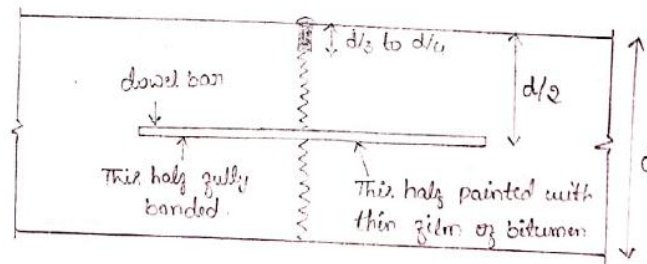 d/3 to d/4
dowel bar
d/2
d
This half fully
bonded.
This half painted with
thin film of bitumen